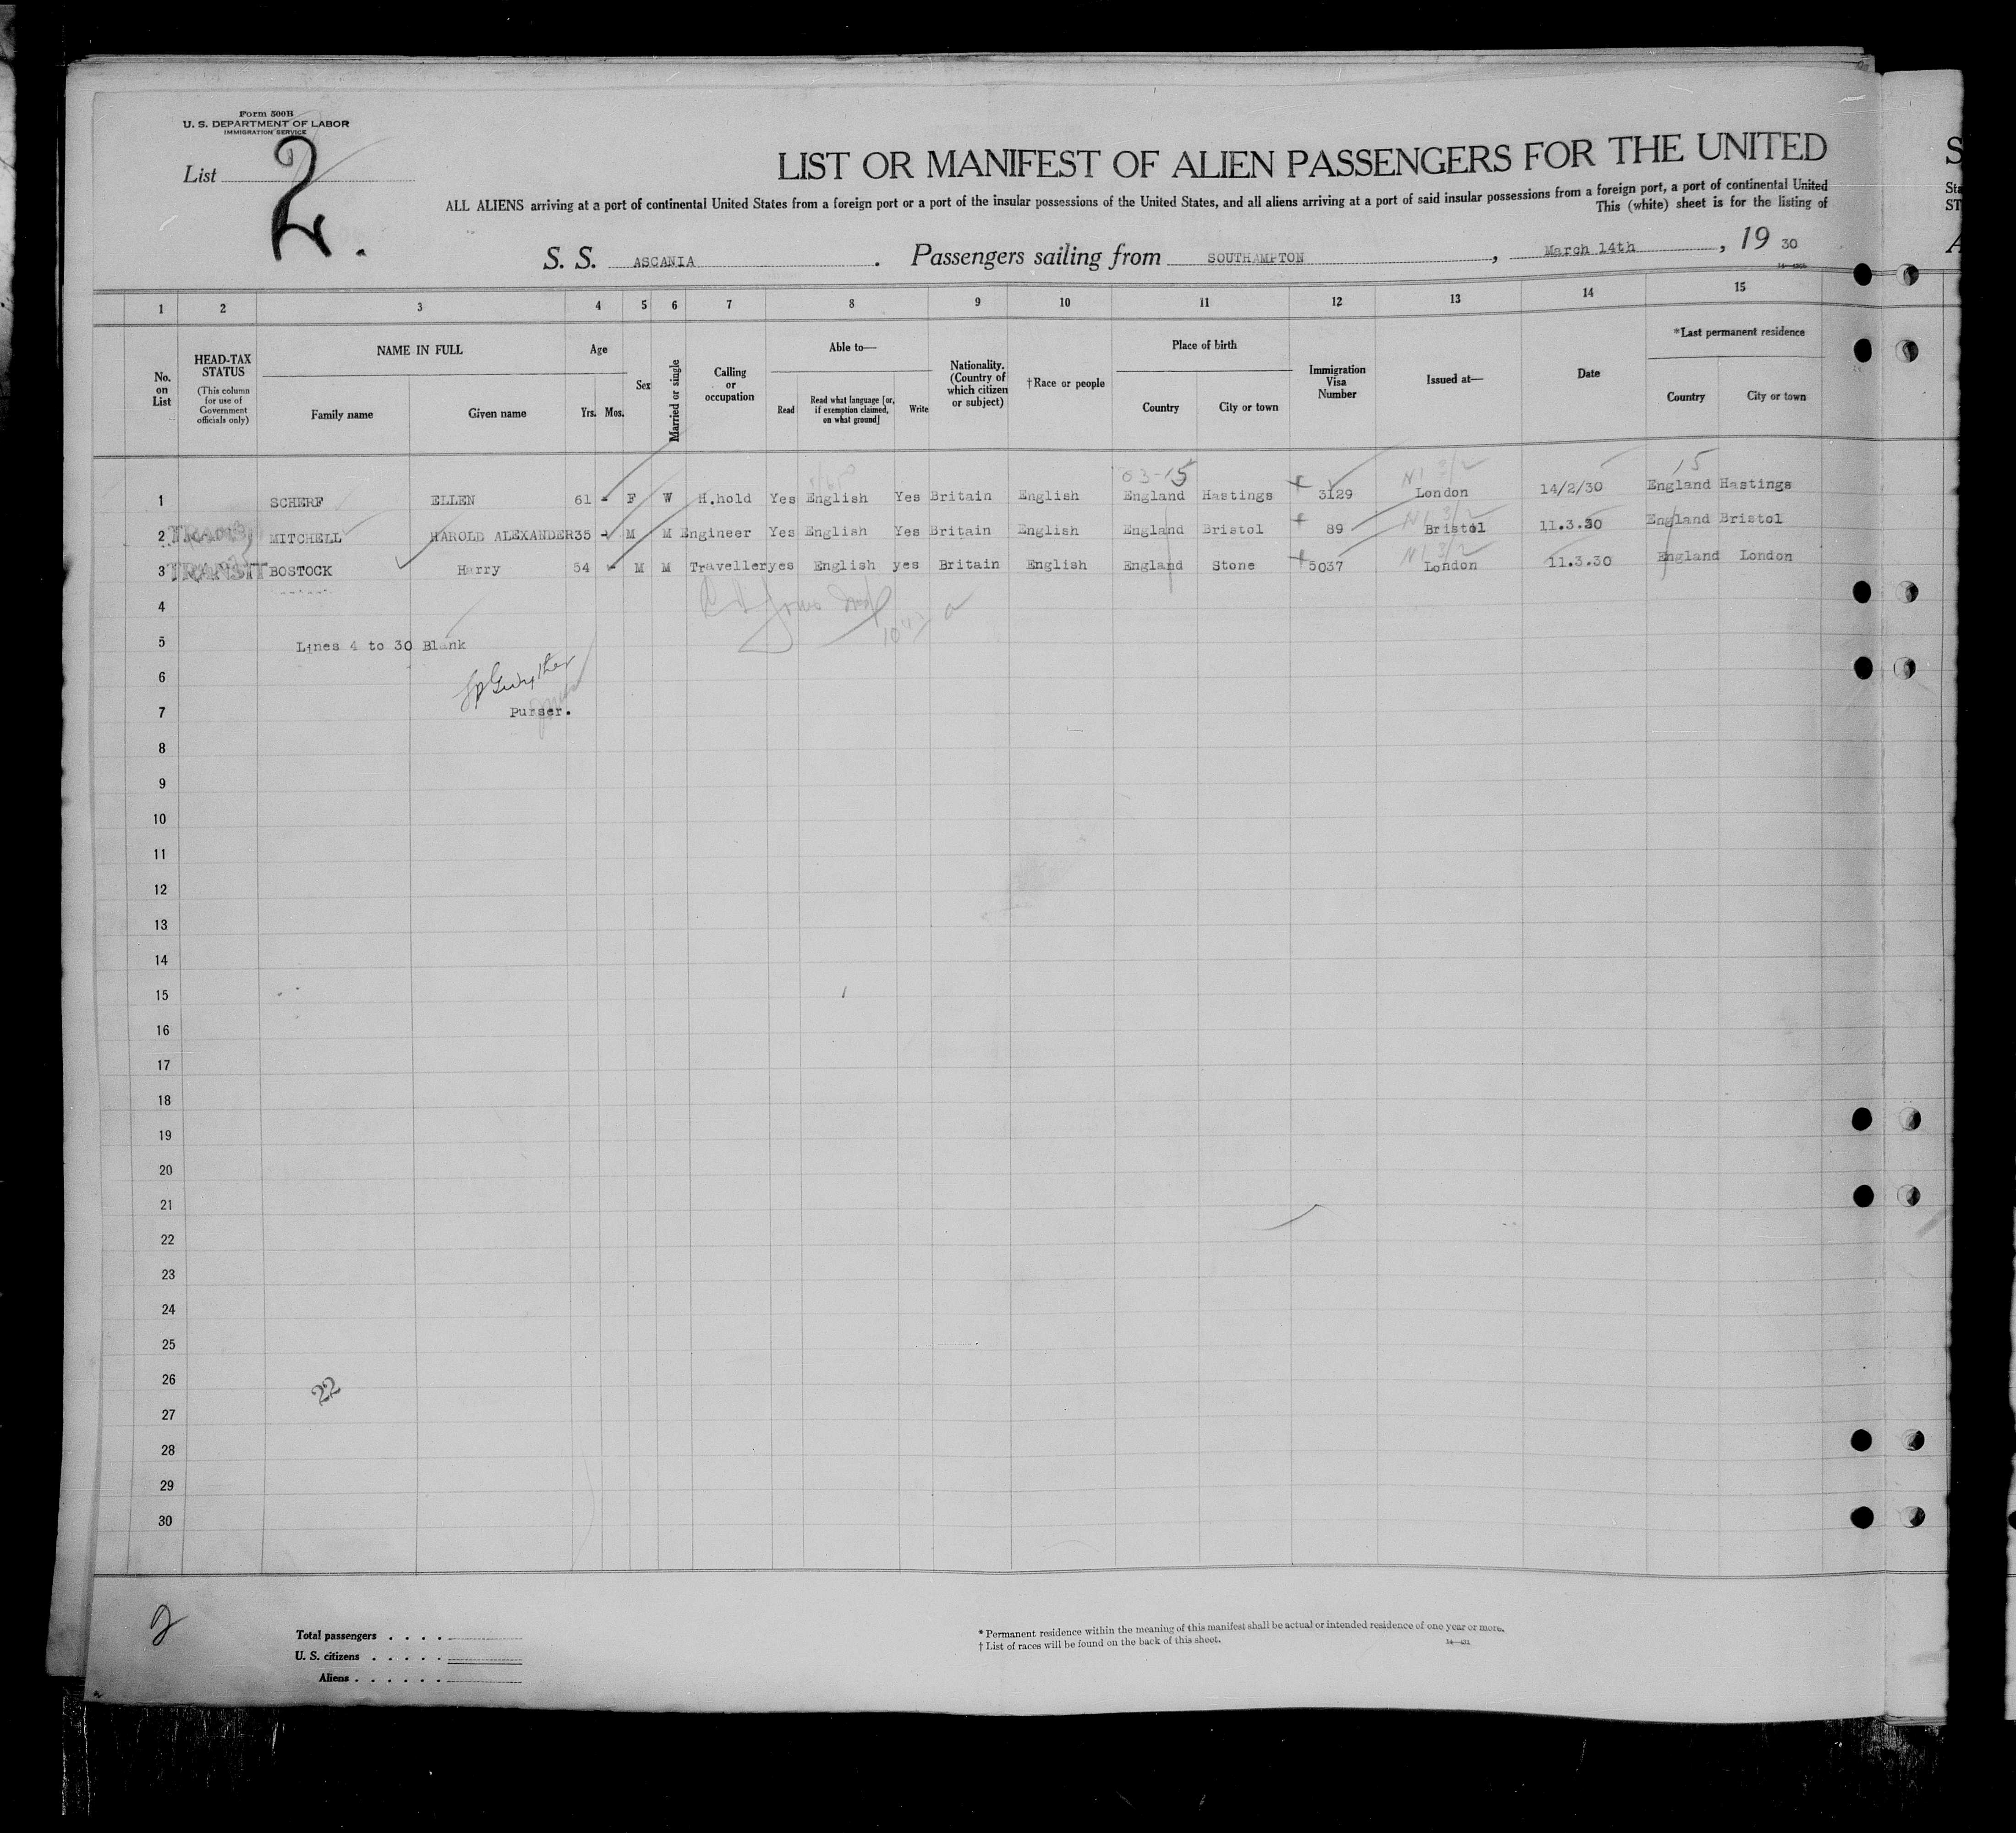 Form 500B
U. S. DEPARTMENT OF LABOR
IMMIGRATION SERVICE
List 2.
LIST OR MANIFEST OF ALIEN PASSENGERS FOR THE UNITED
ALL ALIENS arriving at a port of continental United States from a foreign port or a port of the insular possessions of the United States, and all aliens arriving at a port of said insular possessions from a foreign port, a port of continental United
This (white) sheet is for the listing of
S. S. ASCANIA . Passengers sailing from SOUTHAMPTON , March 14th , 19 30
1 2 3 4 5 6 7 8 9 10 11 12 13 14 15
No. on List
HEAD-TAX STATUS (This column for use of Government officials only)
NAME IN FULL
Family name Given name
Age
Yrs. Mos.
Sex
Married or single
Calling or occupation
Able to—
Read
Read what language [or, if exemption claimed, on what ground]
Write
Nationality. (Country of which citizen or subject)
†Race or people
Place of birth
Country City or town
Immigration Visa Number
Issued at—
Date
*Last permanent residence
Country City or town
03-15 15
1 SCHERF ELLEN 61 F W H.hold Yes English Yes Britain English England Hastings 3129 London 14/2/30 England Hastings
2 TRANS MITCHELL HAROLD ALEXANDER 35 M M Engineer Yes English Yes Britain English England Bristol 89 Bristol 11.3.30 England Bristol
3 TRANSIT BOSTOCK Harry 54 M M Traveller yes English yes Britain English England Stone 5037 London 11.3.30 England London
4
5 Lines 4 to 30 Blank
6
7 Purser.
8
9
10
11
12
13
14
15
16
17
18
19
20
21
22
23
24
25
26 22
27
28
29
30
2
Total passengers . . . .
U. S. citizens . . . . .
Aliens . . . . . .
* Permanent residence within the meaning of this manifest shall be actual or intended residence of one year or more.
† List of races will be found on the back of this sheet.